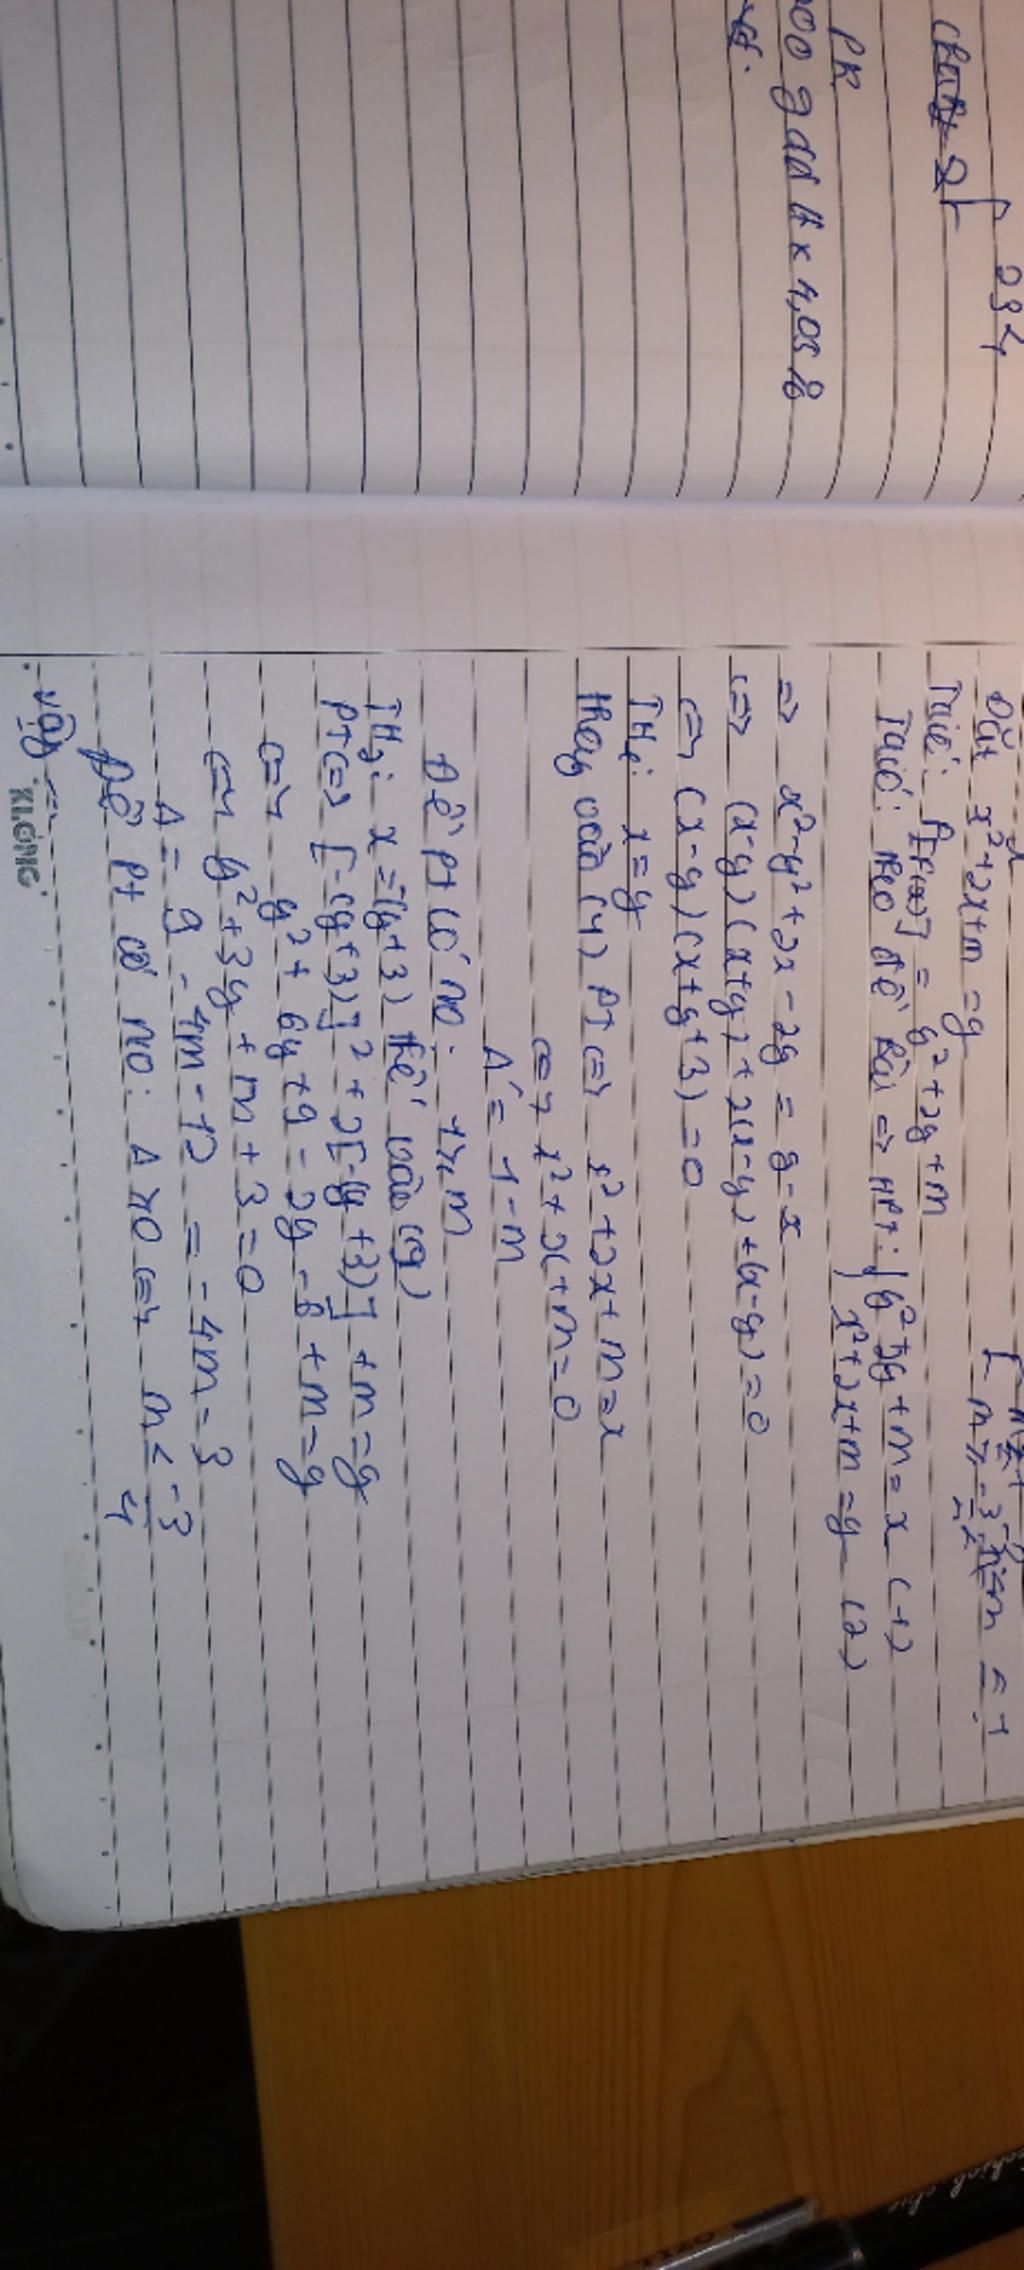 234
PK
00 g dd H x 4,08 lò
x
Đặt x²+2x+m = y
m ≥ -3
Ta có: f[f(x)] = y²+2y+m
Ta có: theo đề bài => HPT: { y²+2y+m = x (1)
x²+2x+m = y (2)
=> x²-y²+2x-2y = y-x
<=> (x-y)(x+y)+2(x-y)+(x-y)=0
<=> (x-y)(x+y+3)=0
TH1: x=y
thay vào (1) PT <=> x²+2x+m=x
<=> x²+x+m=0
Δ = 1-m
Để pt có no: 1 ≥ m
TH2: x=-(y+3) thế vào (2)
PT <=> [-(y+3)]²+2[-(y+3)]+m=y
<=> y²+6y+9-2y-6+m=y
<=> y²+3y+m+3=0
Δ = 9-4m-12 = -4m-3
Để pt có no: Δ ≥ 0 <=> m ≤ -3/4
Vậy
KLONG